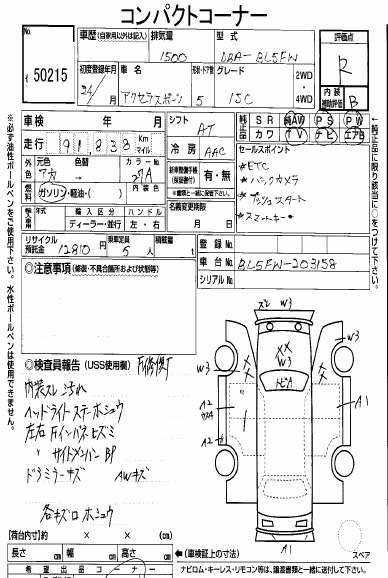 コンパクトコーナー
No.
50215
車歴(自家用以外は記入)
排気量
型式
評価点
1500
DBA-BL5FW
R
初度登録年月
車名
形状・ドア数
グレード
2WD
4WD
24/月
アクセラスポーツ
5
15C
内装
補助評価
B
車検
年
月
シフト
AT
純正品
SR
純AW
PS
PW
カワ
TV
ナビ
エアB
走行
91838
Km
マイル
冷房
AAC
セールスポイント
★ETC
★バックカメラ
★プッシュスタート
★スマートキー
外色
元色
色替
カラーNo.
アカ
27A
燃料
ガソリン・軽油・( )
内装色
有・無
名義変更期限
月 日
輸入車
年式
輸入区分
ハンドル
ディーラー・並行
左・右
リサイクル預託金
12810円
乗車定員
5人
積載量
t
登録No.
車台No.
BL5FW-203158
シリアルNo.
◎注意事項(修復・不具合箇所および状態等)
◎検査員報告(USS使用欄)
内装スレ 汚れ
ヘッドライトステーホシュウ
左右Fインパネヒズミ
〃 サイドメンバーBP
ドアミラーキズ AWキズ
各キズロホシュウ
スレ W3
W3
W3
A2
A2
A1
A1
スペア
【荷台内寸】約 × × (cm)
長さ
cm
幅
cm
高さ
cm
←(車検証上の寸法)
希望出品コーナー
ナビロム・キーレス・リモコン等は、譲渡書類と一緒に送付して下さい。
※必ず油性ボールペンをご使用下さい。水性ボールペンは使用できません。